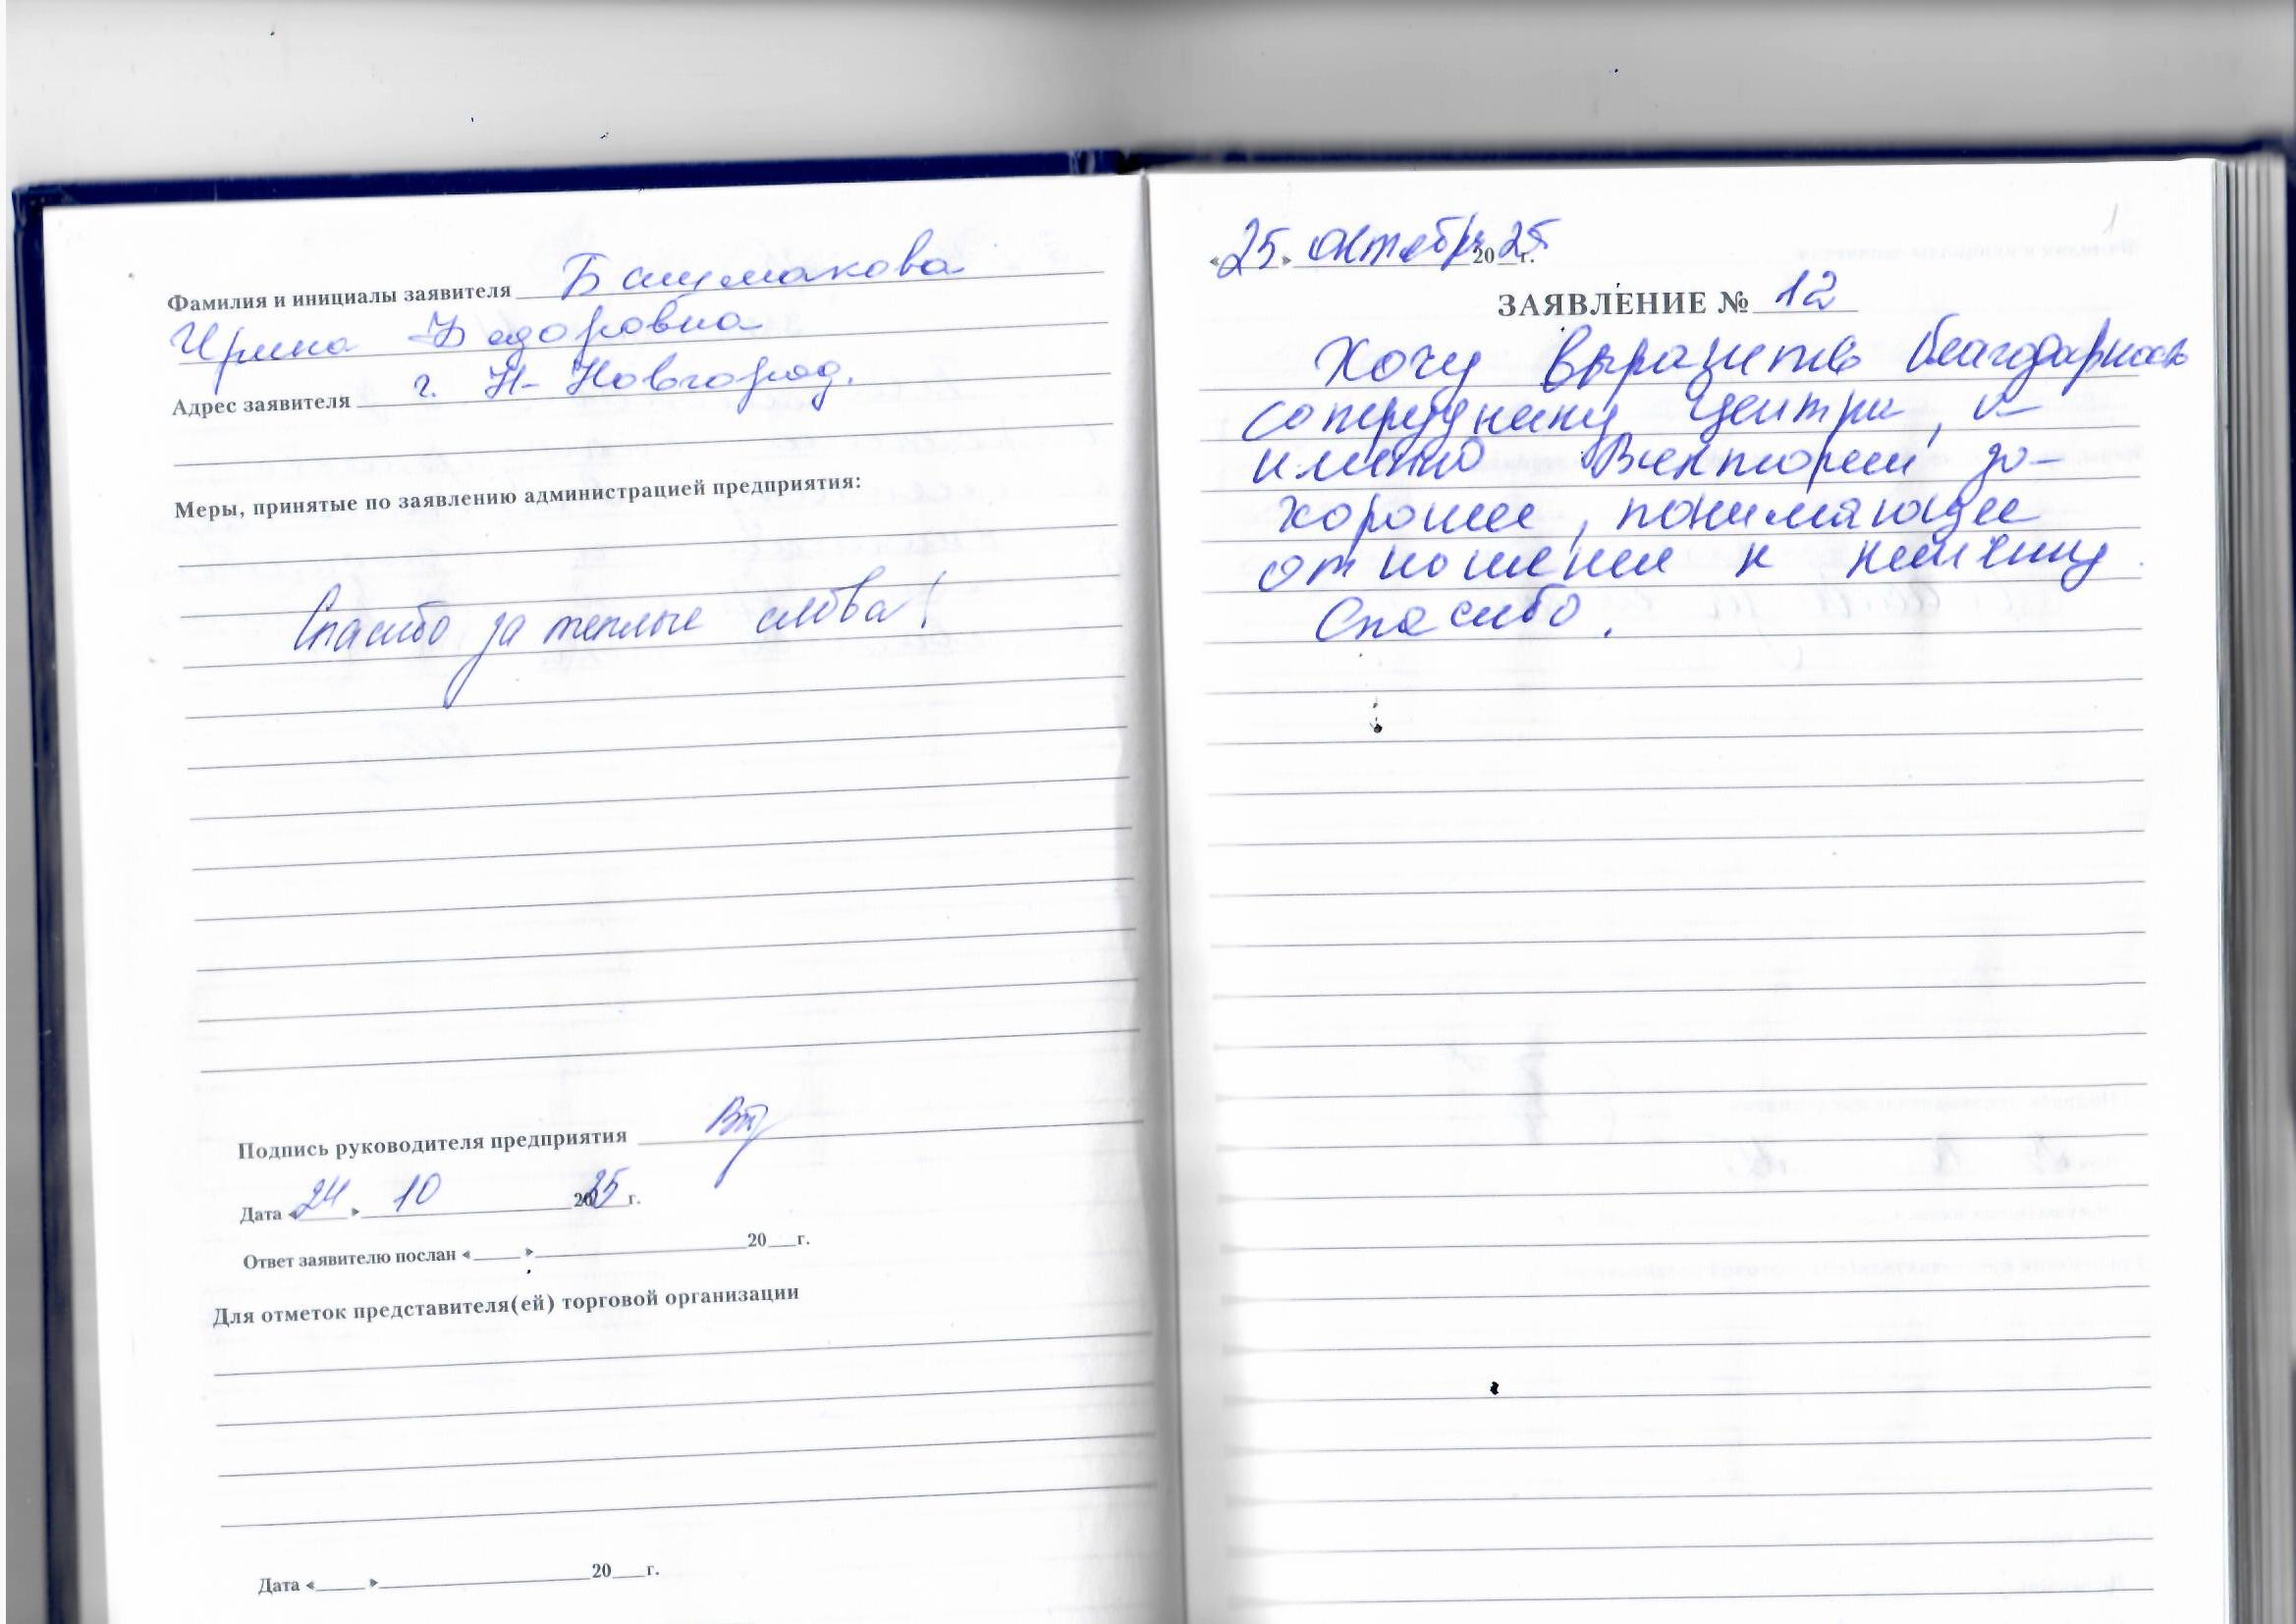 Фамилия и инициалы заявителя Башмакова
Ирина Федоровна
Адрес заявителя г. Н-Новгород.
Меры, принятые по заявлению администрацией предприятия:
Спасибо за теплые слова!
Подпись руководителя предприятия
Дата «24» 10 2025 г.
Ответ заявителю послан «    »    20    г.
Для отметок представителя(ей) торговой организации
Дата «    »    20    г.
«25» октября 2025 г.
ЗАЯВЛЕНИЕ № 12
Хочу выразить благодарность
сотруднику центра, а
именно Виктории за
хорошее, понимающее
отношение к клиенту
Спасибо.